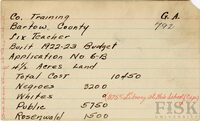 Co. Training G.A.
Bartow, County 792
Six Teacher
Built 1922-23 Budget
Application No 6-B
4½ Acres Land
Total Cost 10450
Negroes 3200
Whites 0
Public 5750
Rosenwald 1500
FISK